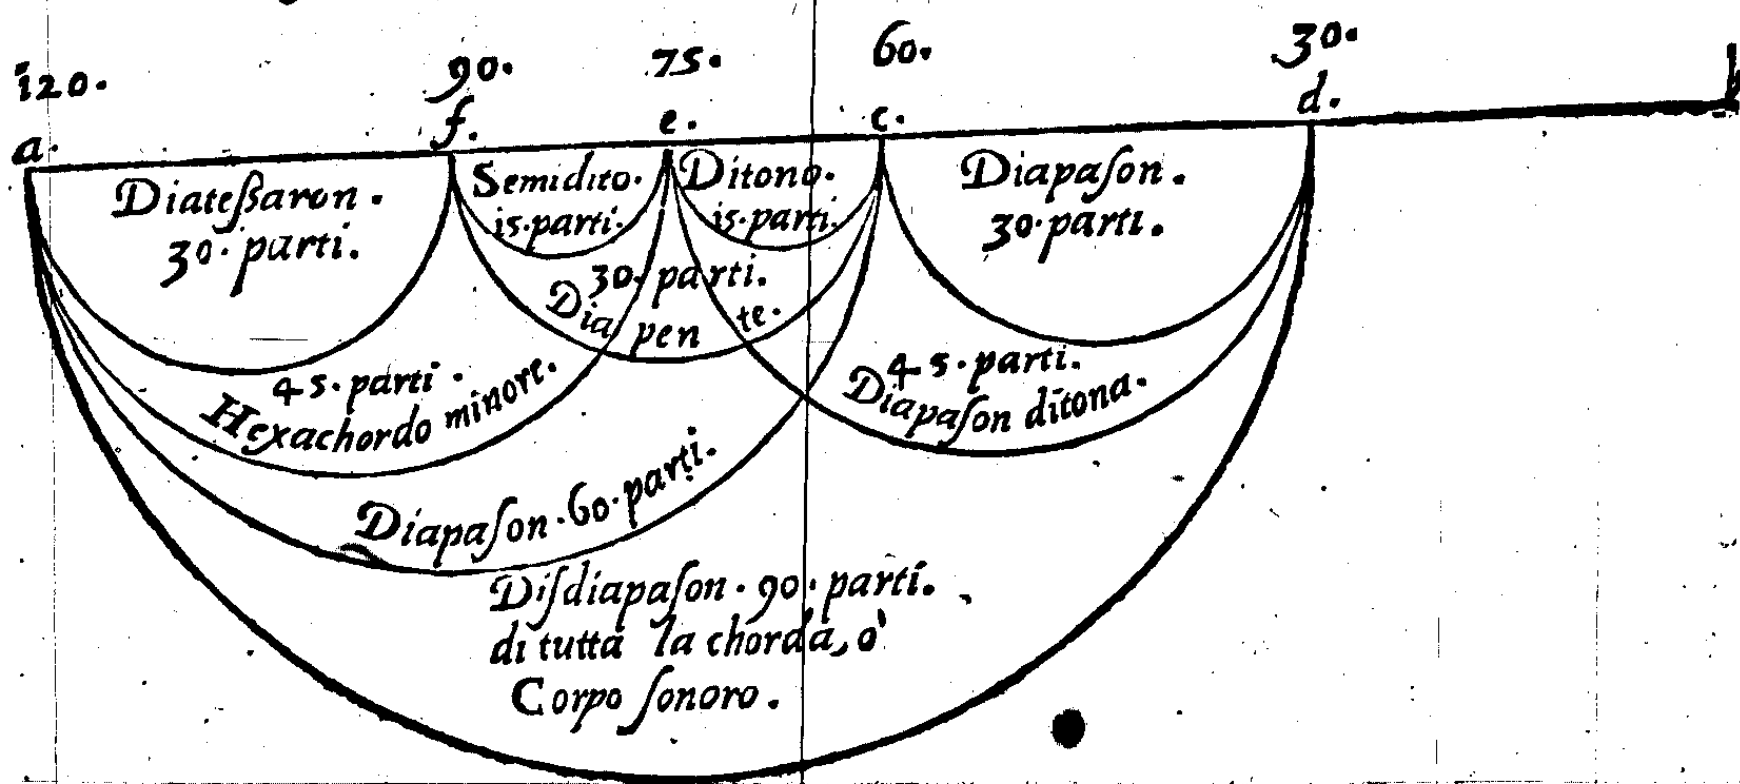 120. 90. 75. 60. 30.
a. f. e. c. d. b
Diateßaron.
30. parti.
Semidito.
15. parti.
Ditono.
15. parti.
Diapaſon.
30. parti.
30. parti.
Diapente.
45. parti.
Hexachordo minore.
45. parti.
Diapaſon ditona.
Diapaſon. 60. parti.
Diſdiapaſon. 90. parti.
di tutta la chorda, ò
Corpo ſonoro.